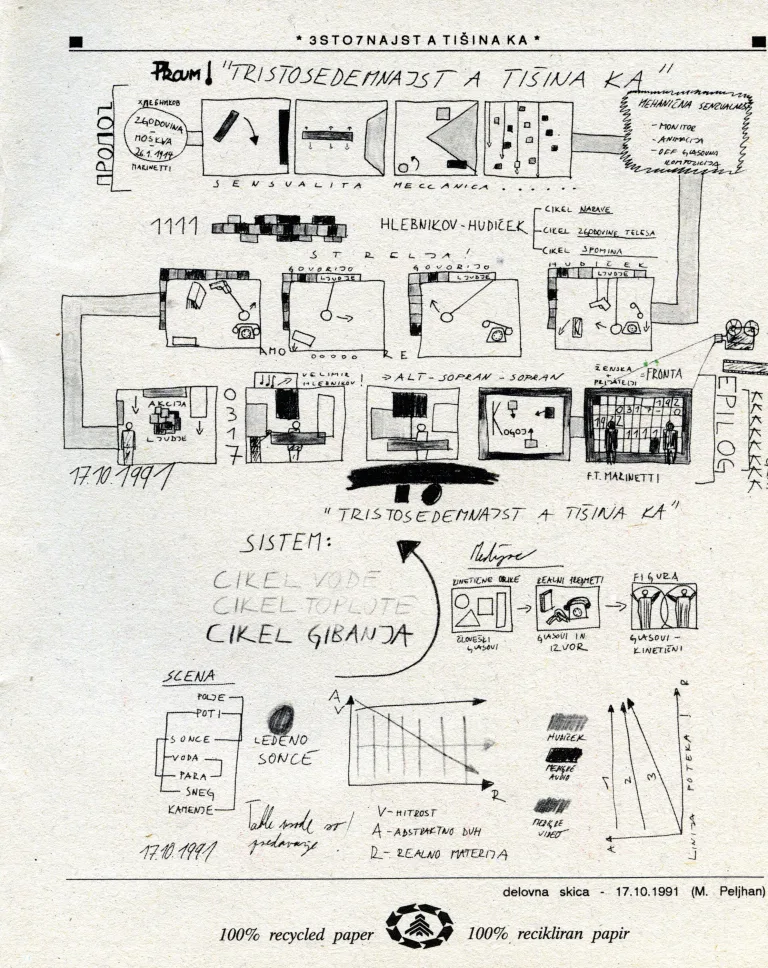 * 3STO7NAJST A TIŠINA KA *
PROUM! "TRISTOSEDEMNAJST A TIŠINA KA"
ПРОЛОГ
ХЛЕБНИКОВ
ZGODOVINA
-
MOSKVA
26.1.1914
MARINETTI
MEHANIČNA SENZUALNOST
- MONITOR
- ANIMACIJA
- OFF GLASOVNA
KOMPOZICIJA
SENSUALITA MECCANICA . . . . . .
1111
HLEBNIKOV-HUDIČEK
CIKEL NARAVE
CIKEL ZGODOVINE TELESA
CIKEL SPOMINA
STRELJA!
GOVORIJO
LJUDJE
GOVORIJO
LJUDJE
HUDIČEK
LJUDJE
AMO
RE
VELIMIR
HLEBNIKOV!
→ ALT-SOPRAN-SOPRAN
ŽENSKA
+
PRIJATELJI
=FRONTA
AKCIJA
LJUDJE
0
3
1
7
KOGOJ
1922
0317-0
1922
1111
EPILOG
17.10.1991
F.T. MARINETTI
"TRISTOSEDEMNAJST A TIŠINA KA"
SISTEM:
CIKEL VODE
CIKEL TOPLOTE
CIKEL GIBANJA
KINETIČNE OBLIKE
REALNI PREDMETI
FIGURA
ČLOVEŠKI
GLASOVI
GLASOVI IN
IZVOR
GLASOVI-
KINETIČNI
SCENA
POLJE
POTI
SONCE
VODA
PARA
SNEG
KAMENJE
LEDENO
SONCE
A
V
R
HUDIČEK
MEDIJSKE
AUDIO
VIDEO
1
2
3
A
R
LINIJA POTEKA!
V-HITROST
A-ABSTRAKTNO DUH
R-REALNO MATERIJA
17.10.1991
delovna skica - 17.10.1991 (M. Peljhan)
100% recycled paper
100% recikliran papir